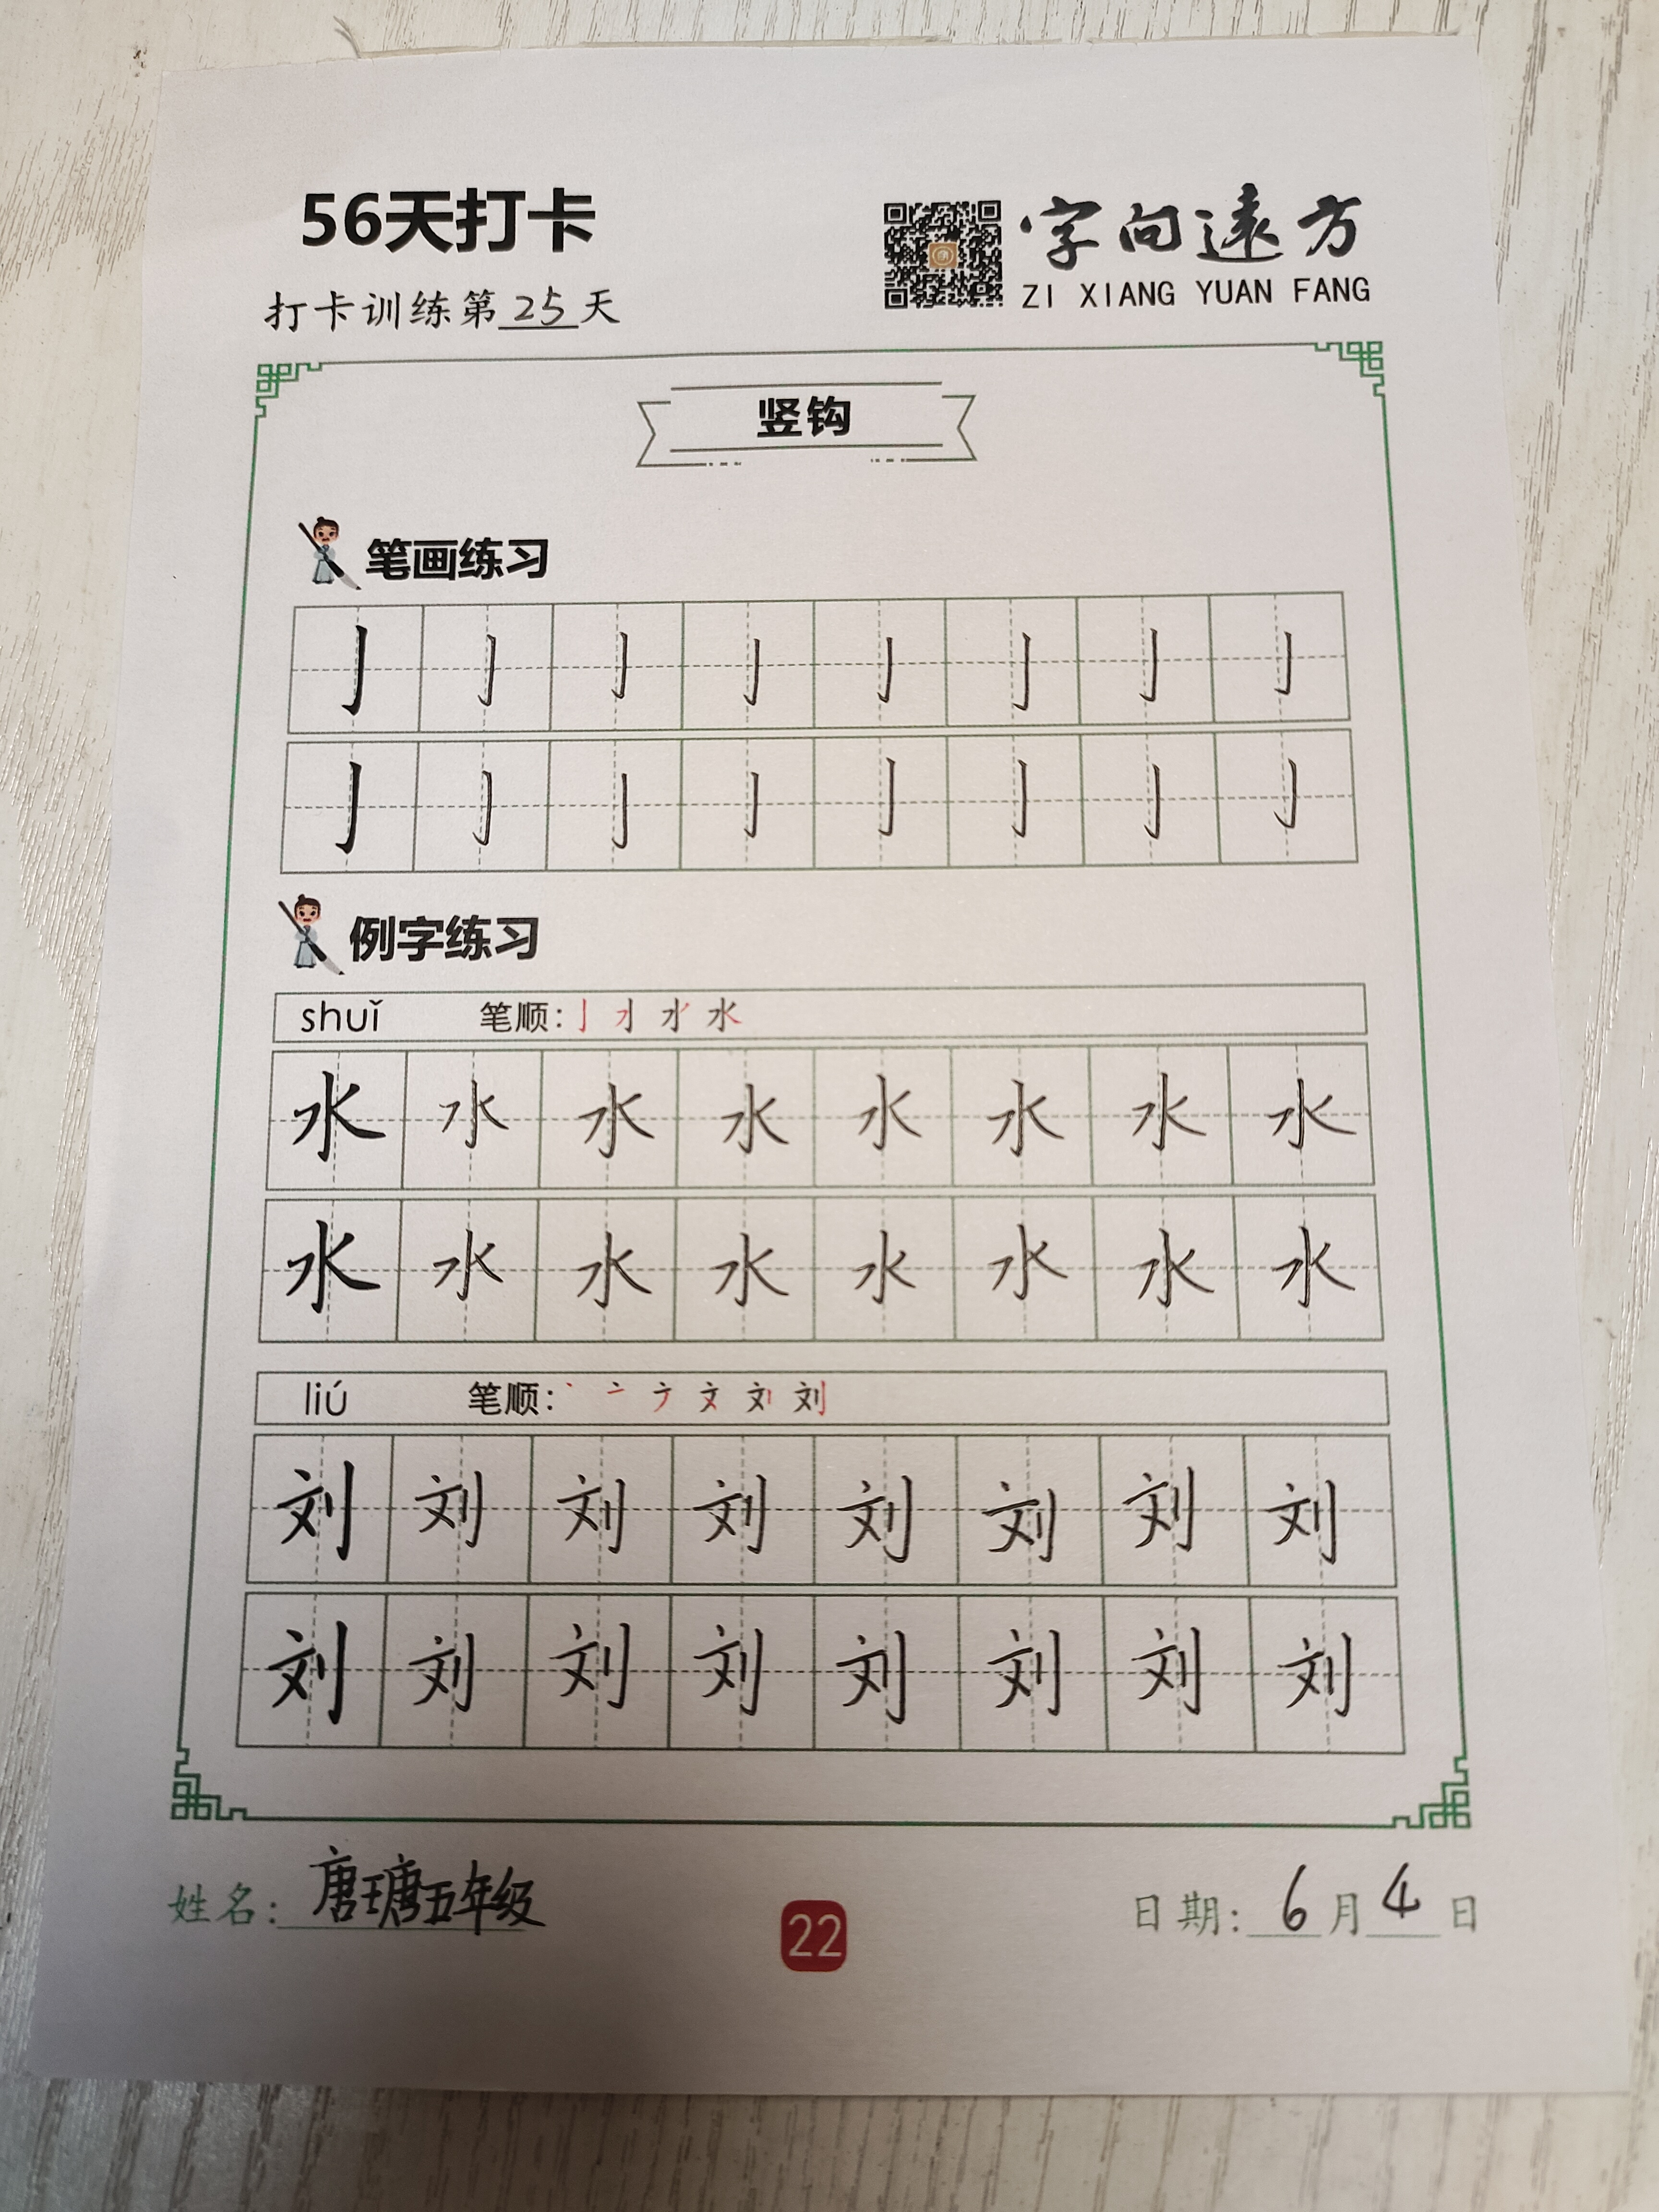 56天打卡
字向遠方
ZI XIANG YUAN FANG
打卡训练第25天
竖钩
笔画练习
亅亅亅亅亅亅亅亅
亅亅亅亅亅亅亅亅
例字练习
shuǐ 笔顺:
水水水水水水水水
水水水水水水水水
liú 笔顺:
刘刘刘刘刘刘刘刘
刘刘刘刘刘刘刘刘
姓名:唐瑭五年级
22
日期:6月4日